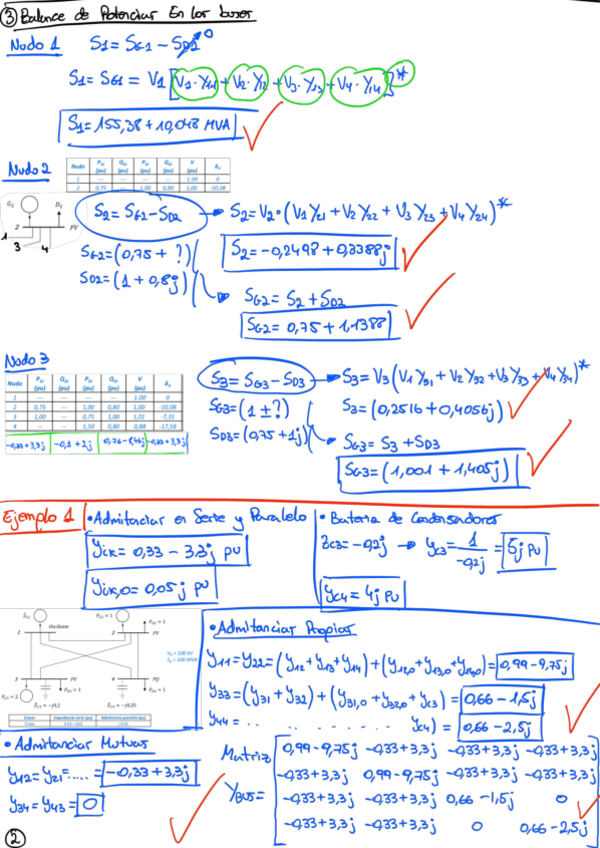 ③ Balance de Potencias En los buses
Nudo 1 S1 = SG1 - SD1 0
S1 = SG1 = V1 [V1·Y11 + V2·Y12 + V3·Y13 + V4·Y14]*
S1 = 155,38 + 10,048 MVA
Nudo 2
Nudo PGi (pu) QGi (pu) PDi (pu) QDi (pu) V (pu) δi
1 --- --- --- --- 1.00 0
2 0,75 --- 1,00 0,80 1,00 -10,08
G2 D2
2 PV
1 3 4
S2 = SG2 - SD2 → S2 = V2·(V1 Y21 + V2 Y22 + V3 Y23 + V4 Y24)*
SG2 = (0,75 + ?)
S2 = -0,2498 + 0,3388j
SD2 = (1 + 0,8j)
SG2 = S2 + SD2
SG2 = 0,75 + 1,1388
Nudo 3
1 --- --- --- --- 1.00 0
2 0,75 --- 1,00 0,80 1,00 -10,08
3 1,00 --- 0,75 1,00 1,01 -7,31
4 --- --- 1,50 0,80 0,88 -17,58
-0,33+3,3j
S3 = SG3 - SD3 → S3 = V3 (V1 Y31 + V2 Y32 + V3 Y33 + V4 Y34)*
SG3 = (1 ± ?)
S3 = (0,2516 + 0,4056j)
SD3 = (0,75 + 1j)
SG3 = S3 + SD3
SG3 = (1,001 + 1,405j)
Ejemplo 1
• Admitancias en Serie y Paralelo
yik = 0,33 - 3,3j pu
yik,0 = 0,05j pu
• Bateria de Condensadores
zc3 = -0,2j → yc3 = 1/-0,2j = 5j pu
yc4 = 4j pu
Oscilante
1 2 PV
3 PV 4 PQ
• Admitancias Propias
y11 = y22 = (y12 + y13 + y14) + (y12,0 + y13,0 + y14,0) = 0,99 - 9,75j
y33 = (y31 + y32) + (y31,0 + y32,0 + yc3) = 0,66 - 1,5j
y44 = .. .. .. .. yc4) = 0,66 - 2,5j
• Admitancias Mutuas
y12 = y21 = ..... = -0,33 + 3,3j
y34 = y43 = 0
Matriz YBUS =
0,99-9,75j -0,33+3,3j -0,33+3,3j -0,33+3,3j
-0,33+3,3j 0,99-9,75j -0,33+3,3j -0,33+3,3j
-0,33+3,3j -0,33+3,3j 0,66-1,5j 0
-0,33+3,3j -0,33+3,3j 0 0,66-2,5j
②